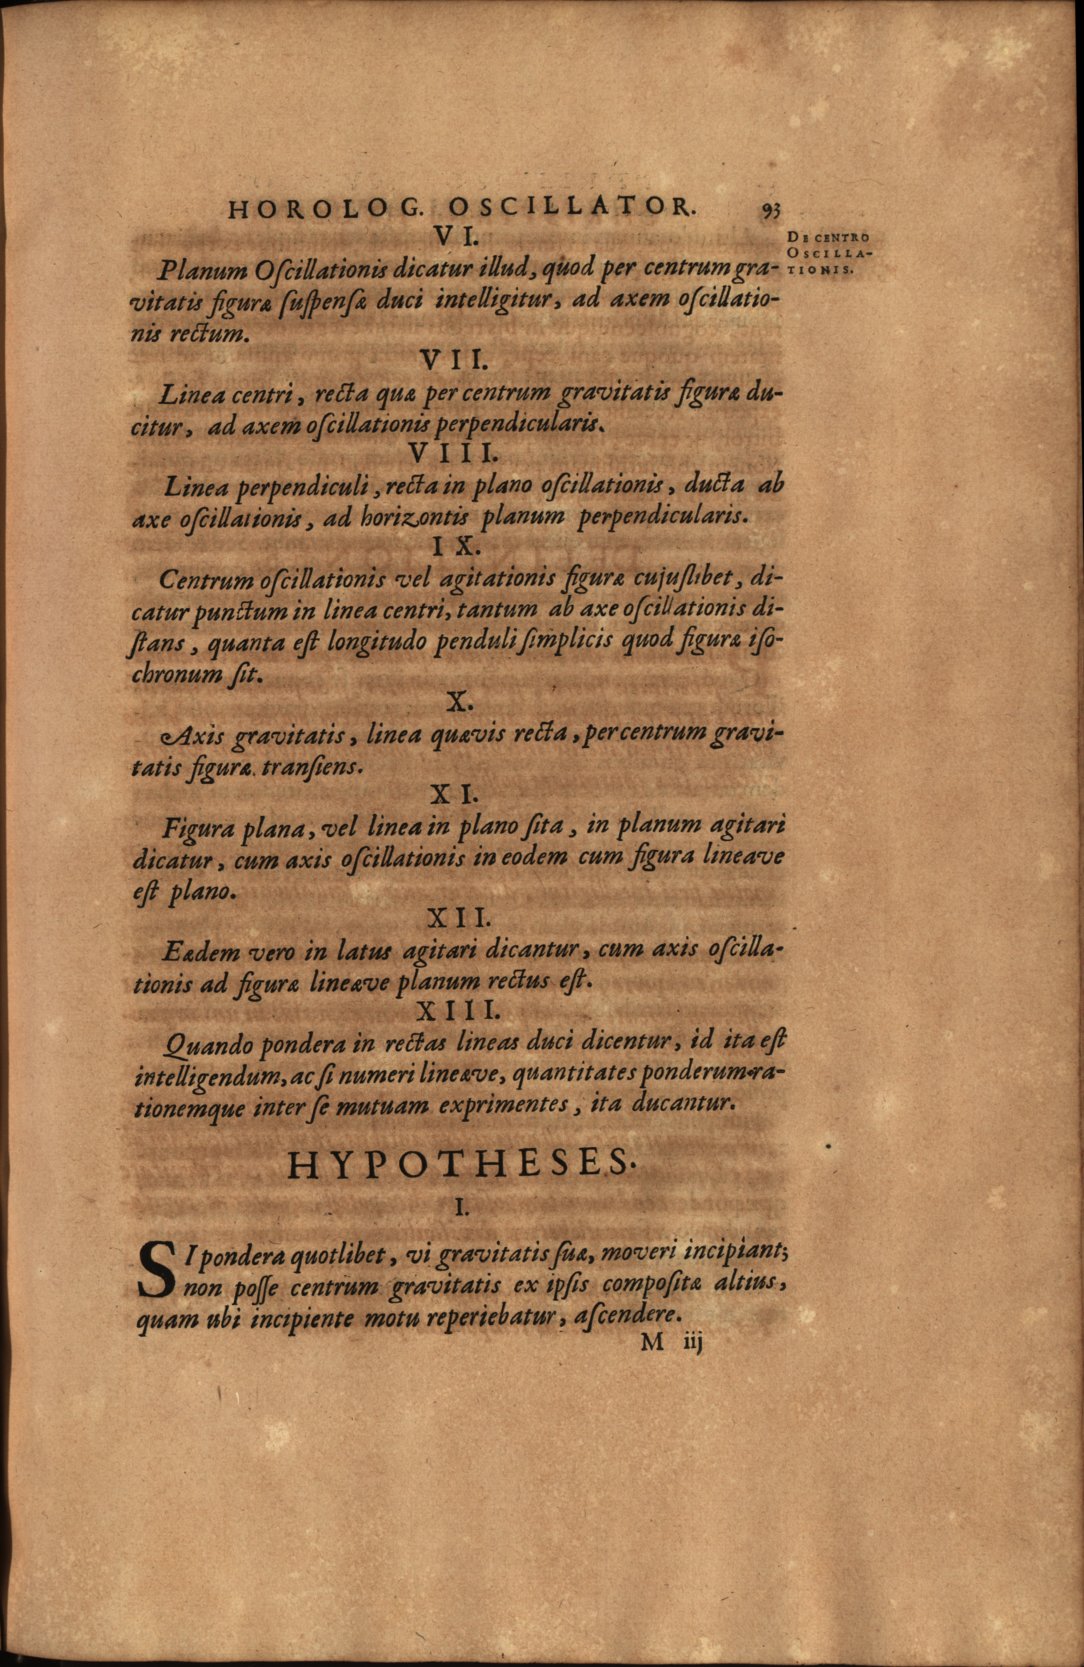 HOROLOG. OSCILLATOR. 93
DE CENTRO
OSCILLA-
TIONIS.
VI.
Planum Oſcillationis dicatur illud, quod per centrum gra-
vitatis figuræ ſuſpenſæ duci intelligitur, ad axem oſcillatio-
nis rectum.
VII.
Linea centri, recta quæ per centrum gravitatis figuræ du-
citur, ad axem oſcillationis perpendicularis.
VIII.
Linea perpendiculi, recta in plano oſcillationis, ducta ab
axe oſcillationis, ad horizontis planum perpendicularis.
IX.
Centrum oſcillationis vel agitationis figuræ cujuſlibet, di-
catur punctum in linea centri, tantum ab axe oſcillationis di-
ſtans, quanta eſt longitudo penduli ſimplicis quod figuræ iſo-
chronum ſit.
X.
Axis gravitatis, linea quævis recta, per centrum gravi-
tatis figuræ tranſiens.
XI.
Figura plana, vel linea in plano ſita, in planum agitari
dicatur, cum axis oſcillationis in eodem cum figura lineave
eſt plano.
XII.
Eædem vero in latus agitari dicantur, cum axis oſcilla-
tionis ad figuræ lineæve planum rectus eſt.
XIII.
Quando pondera in rectas lineas duci dicentur, id ita eſt
intelligendum, ac ſi numeri lineæve, quantitates ponderum ra-
tionemque inter ſe mutuam exprimentes, ita ducantur.
HYPOTHESES.
I.
SI pondera quotlibet, vi gravitatis ſuæ, moveri incipiant;
non poſſe centrum gravitatis ex ipſis compoſitæ altius,
quam ubi incipiente motu reperiebatur, aſcendere.
M iij